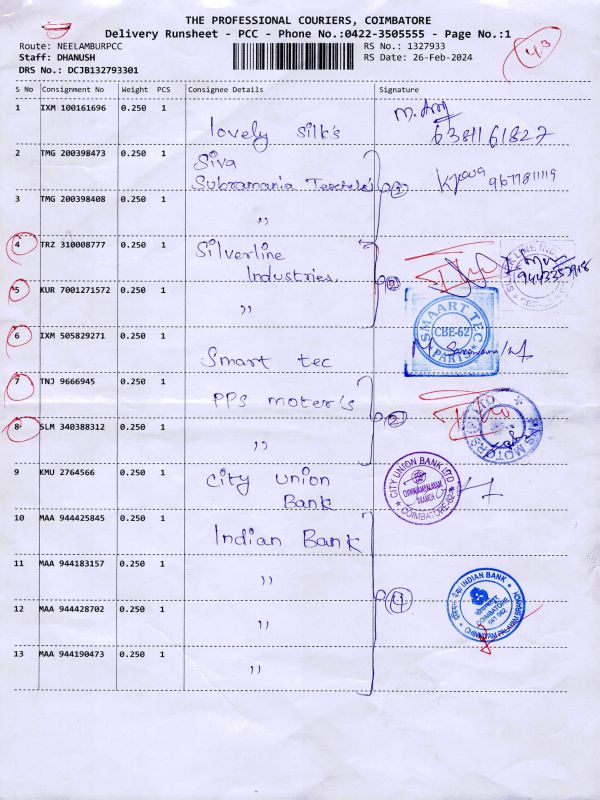 THE PROFESSIONAL COURIERS, COIMBATORE
Delivery Runsheet - PCC - Phone No.:0422-3505555 - Page No.:1
43
Route: NEELAMBURPCC
RS No.: 1327933
Staff: DHANUSH
RS Date: 26-Feb-2024
DRS No.: DCJB132793301
S No Consignment No Weight PCS Consignee Details Signature
1 IXM 100161696 0.250 1
lovely silk's
6381161827
2 TMG 200398473 0.250 1 Siva
Subramania Textele's
9677811119
3 TMG 200398408 0.250 1
,,
4 TRZ 310008777 0.250 1 Silverline
Industries,
9443357918
5 KUR 7001271572 0.250 1
,,
6 IXM 505829271 0.250 1
Smart tec
SMAART TEC
CBE-62
PARTS
7 TNJ 9666945 0.250 1 PPS moter's
2
8 SLM 340388312 0.250 1
,,
MOTORS
9 KMU 2764566 0.250 1 City union
Bank
CITY UNION BANK LTD
CHINNIAMPALAYAM
BRANCH
COIMBATORE-62
10 MAA 944425845 0.250 1 Indian Bank
11 MAA 944183157 0.250 1
,,
4
12 MAA 944428702 0.250 1
,,
INDIAN BANK
COIMBATORE
641 062
CHINNIYAM PALAYAM BRANCH
13 MAA 944190473 0.250 1
,,